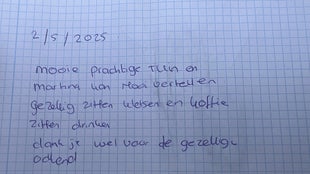 2/5/2025
mooie prachtige Tuin en
martina kan mooi vertellen
gezellig zitten kletsen en koffie
zitten drinken
dank je wel voor de gezellige